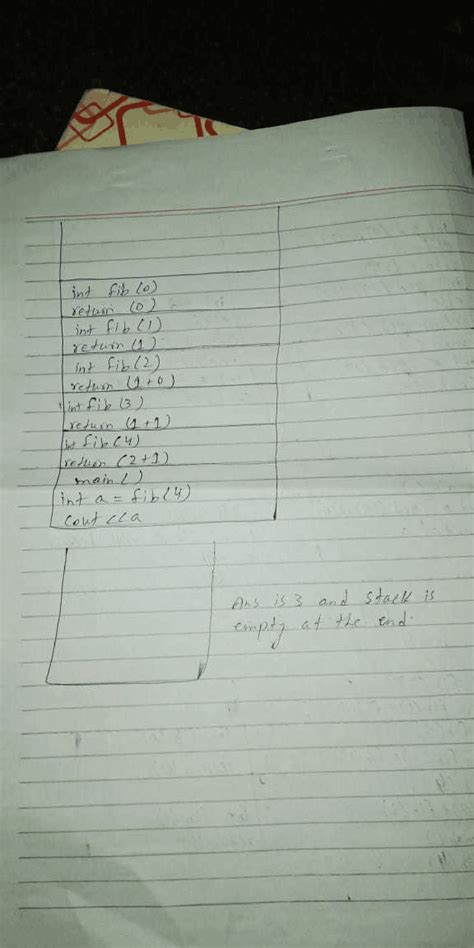 int fib (0)
return (0)
int fib (1)
return (1)
int fib (2)
return (1+0)
int fib (3)
return (1+1)
int fib (4)
return (2+1)
main ( )
int a = fib (4)
cout << a
Ans is 3 and stack is
empty at the end.